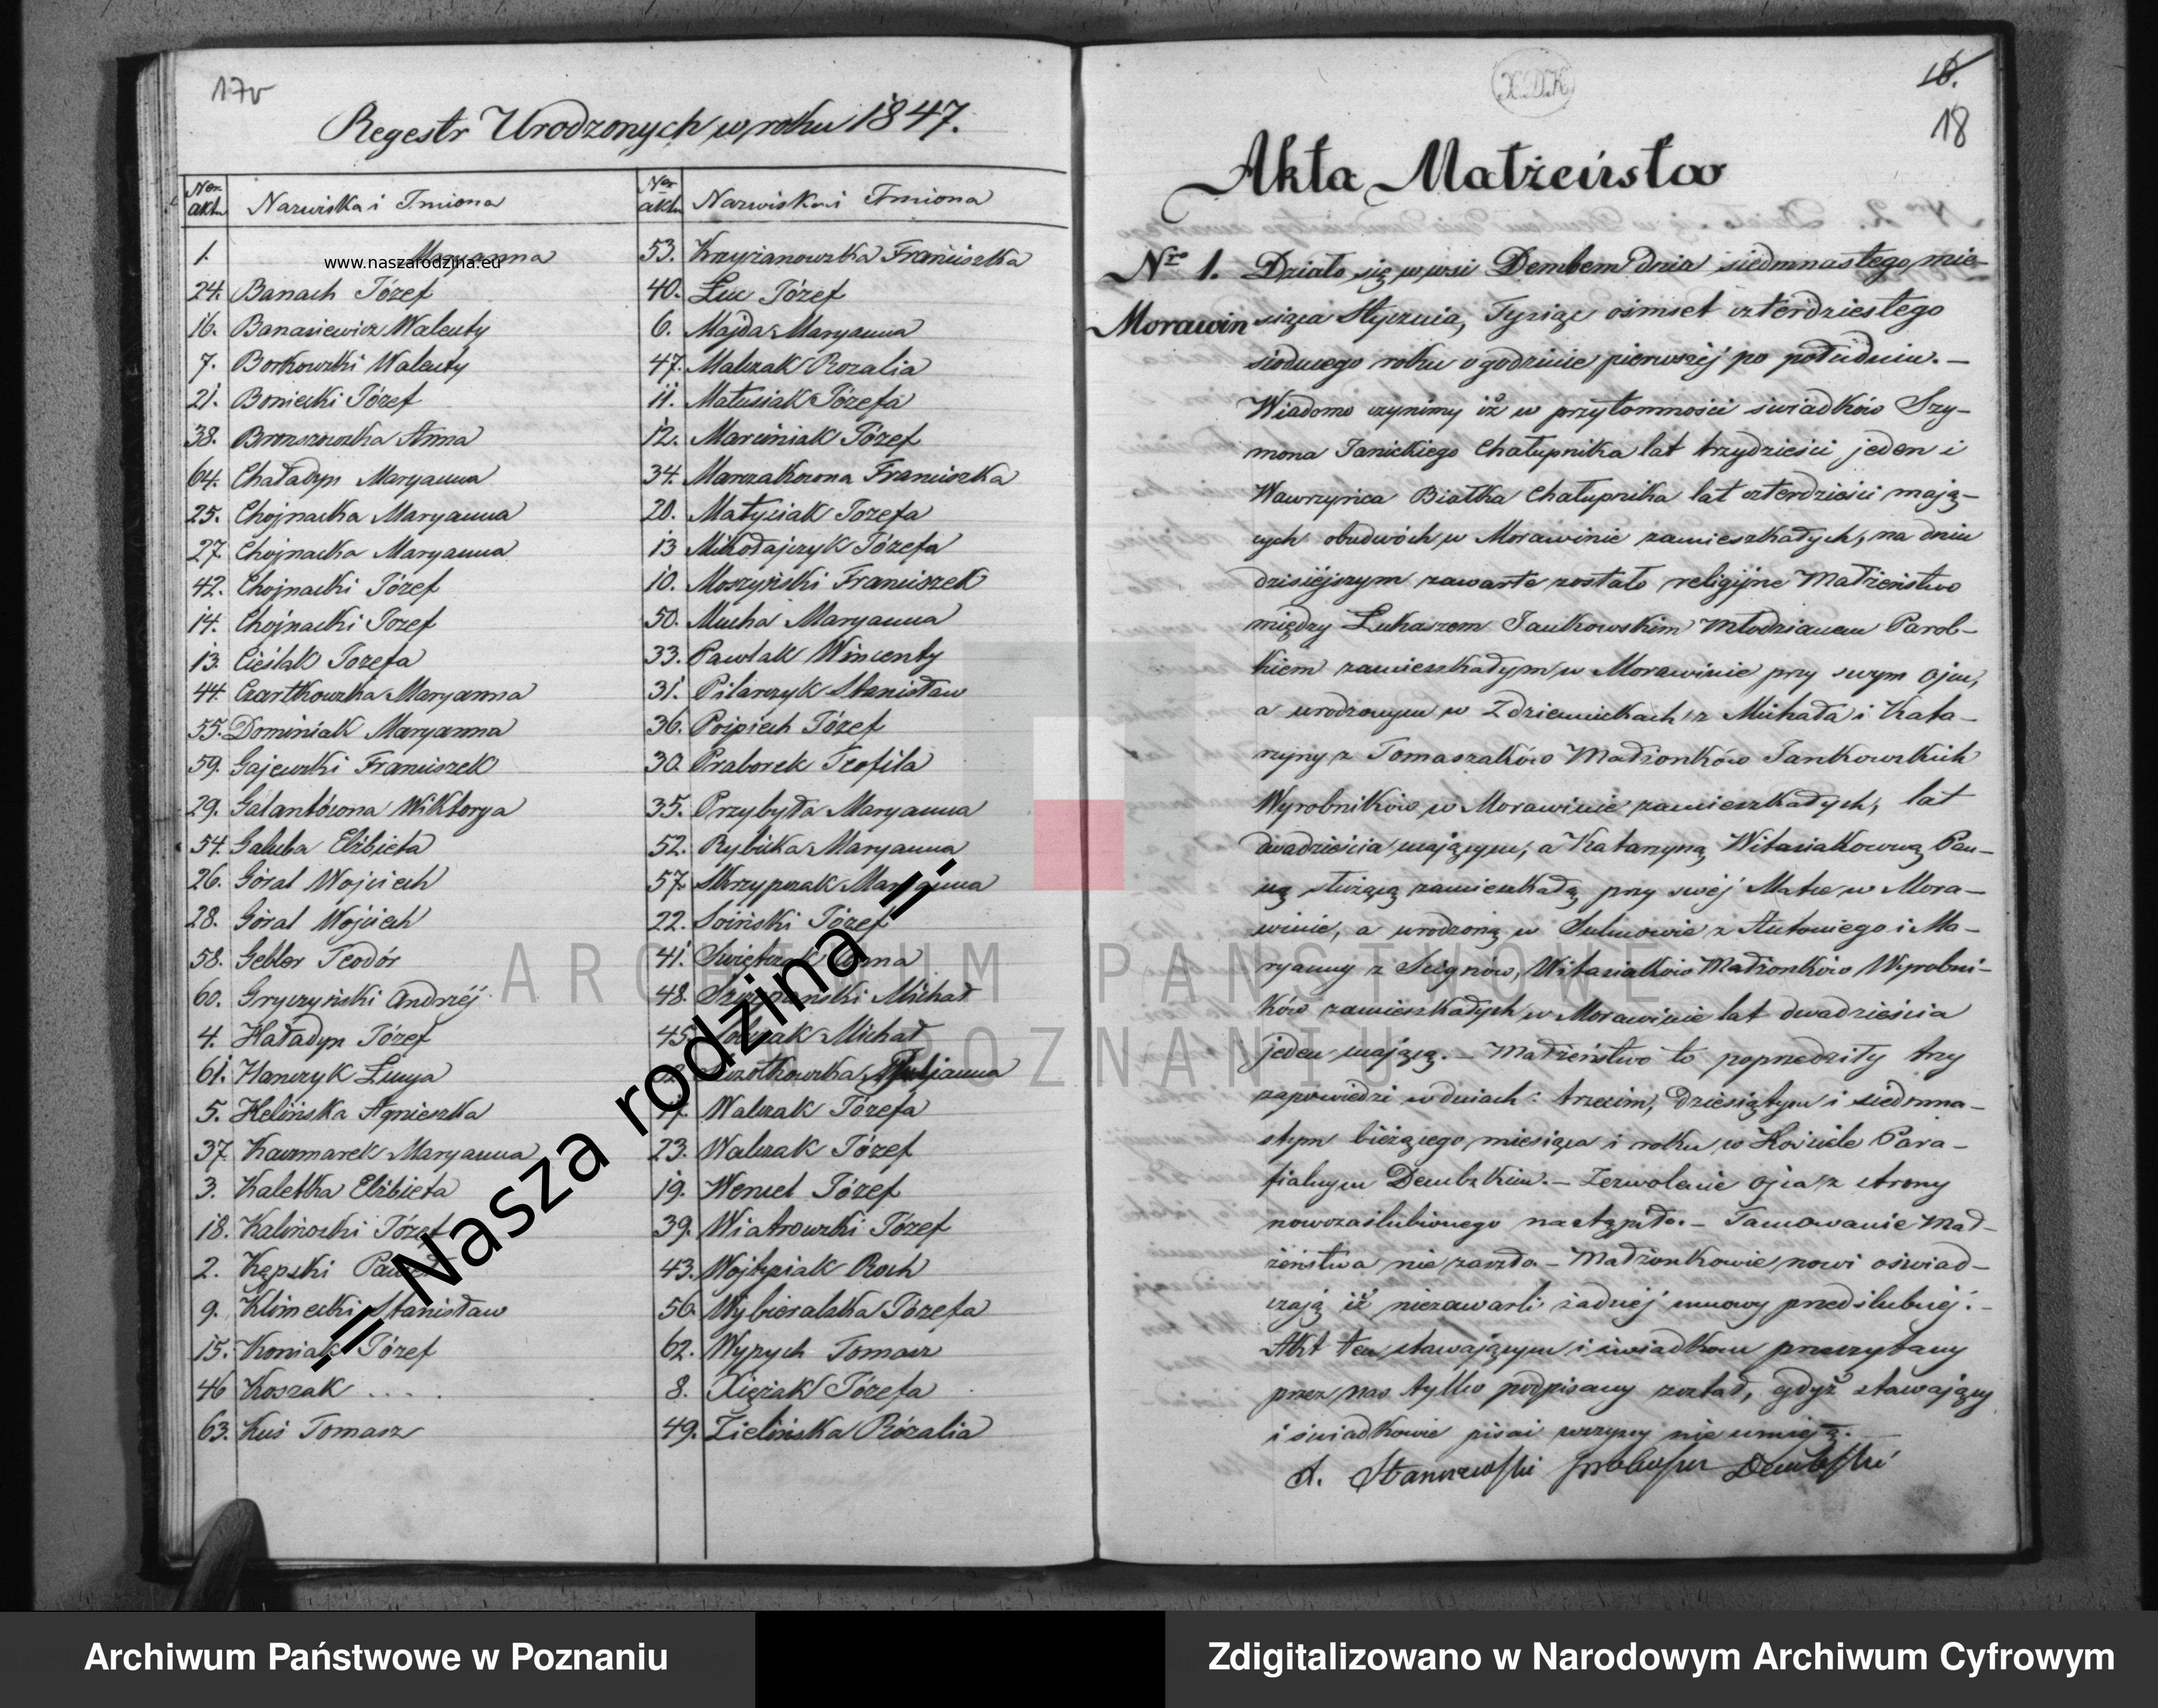 17v
Regestr Urodzonych w roku 1847.
Ner. aktu Nazwiska i Imiona
1. Maryanna
www.naszarodzina.eu
24. Banach Józef
16. Banasiewicz Walenty
7. Borkowski Walenty
21. Boniecki Józef
38. Anna
64. Chaładyn Maryanna
25. Chojnacka Maryanna
27. Chojnacka Maryanna
42. Chojnacki Józef
14. Chojnacki Jozef
13. Cieślak Jozefa
44. Czartkowska Maryanna
55. Dominiak Maryanna
59. Gajewski Franciszek
29. Galantówona Wiktorya
54. Galuba Elżbieta
26. Góral Wojciech
28. Góral Wojciech
58. Gebler Teodór
60. Gryczyński Andrzéj
4. Haładyn Józef
61. Hanczyk Łucya
5. Helińska Agnieszka
37. Kaczmarek Maryanna
3. Kaletka Elżbieta
18. Kalinoski Józef
2. Kępski Paweł
9. Klimecki Stanisław
15. Koniak Józef
46 Koszak . . . .
63. Kuś Tomasz
Ner aktu Nazwiska i Imiona
53. Krzyżanowska Franciszka
40. Luc Józef
6. Majda Maryanna
47. Malczak Rozalia
11. Matusiak Józefa
12. Marciniak Józef
34. Marczakowna Franciszka
20. Matysiak Jozefa
13 Mikołajczyk Józefa
10. Moszyński Franciszek
50. Mucha Maryanna
33. Pawlak Wincenty
31. Pilarczyk Stanisław
36. Pośpiech Józef
30. Praborek Teofila
35. Przybyła Maryanna
52. Rybicka Maryanna
57. Skrzypczak Maryanna
22. Soiński Józef
41. Swiętczak Anna
48. Szczepański Michał
45. Michał
Juljanna
17. Walczak Józefa
23. Walczak Józef
19. Wencel Józef
39. Wiatrowski Józef
43. Wojtysiak Roch
56. Wybieralska Józefa
62. Wypych Tomasz
8. Xiężak Józefa
49. Zielińska Rózalia
= Nasza rodzina =
ARCHIWUM PAŃSTWOWE
W POZNANIU
X.D.K
16.
18
Akta Małżeństw
Nro 1. Działo się w wsi Dembem dnia siedmnastego mie-
Morawin siąca Stycznia, Tysiąc ośmset czterdziestego
siodmego roku o godzinie pierwszéj po południu. —
Wiadomo czynimy iż w przytomności świadków Szy-
mona Janickiego Chałupnika lat trzydzieści jeden i
Wawrzyńca Białka Chałupnika lat czterdzieści mają-
cych obudwóch w Morawinie zamieszkałych, na dniu
dzisiéjszym zawarte zostało religijne Małżeństwo
między Łukaszem Jankowskim Młodzianem Parob-
kiem zamieszkałym w Morawinie przy swym Ojcu,
a urodzonym w Zdzienickach z Michała i Kata-
rzyny z Tomaszaków Małżonków Jankowskich
Wyrobników w Morawinie zamieszkałych, lat
dwadzieścia mającym, a Katarzyną Witasiakowną Pan-
ną służącą zamieszkałą przy swéj Matce w Mora-
winie, a urodzoną w Sulmowie z Antoniego i Ma-
ryanny z Witasiaków Małżonków Wyrobni-
ków zamieszkałych w Morawinie lat dwadzieścia
jeden mającą. — Małżeństwo to poprzedziły trzy
zapowiedzi w dniach: trzecim, dziesiątym i siedmna-
stym bieżącego miesiąca i roku w Kościele Para-
fialnym Dembskim. — Zezwolenie Ojca z strony
nowozaślubionego nastąpiło. — Tamowanie Mał-
żeństwa nie zaszło. — Małżonkowie nowi oświad-
czają iż niezawarli żadnéj umowy przedślubnéj. -
Akt ten stawającym i świadkom przeczytany
przez nas tylko podpisany został, gdyż stawający
i świadkowie pisać wszyscy nie umieją. —
A. Stanczewski Proboszcz Dembski
Archiwum Państwowe w Poznaniu
Zdigitalizowano w Narodowym Archiwum Cyfrowym